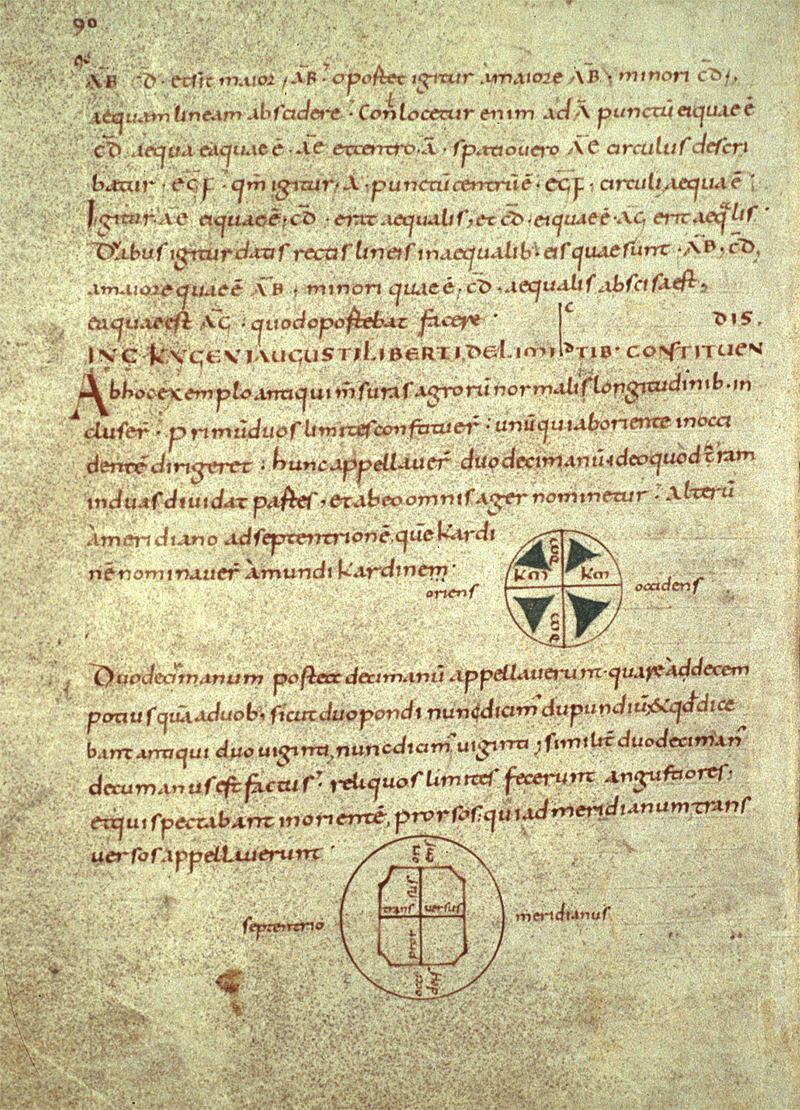 90
AB CD · et sit maior · AB · oportet igitur a maiore AB · minori CD ·
aequam lineam abscidere · Conlocetur enim ad A punctū ei quae ē
CD aequa ea quae ē · AE et centro · A · spatio uero AE circulus descri
batur · ECF · qm̄ igitur · A · punctū centrū ē · ECF · circuli aequa ē
Igitur AE ei quae ē · CD · erit aequalis, et CD · ei quae ē · AC erit aeqlis ·
Duabus igitur datis rectis lineis inaequalib · eis quae sunt · AB · CD,
a maiore quae ē AB · minori quae ē · CD · aequalis abscisa est,
ea quae est AC · quod oportebat facere · C DIS.
INC · KYGENI AUGUSTI LIBERTI DE LIMI D TIB · CONSTITUEN
Ab hoc exemplo antiqui m̄suras agrorū normalis longitudinib · in
cluser̄ · primū duos limites constituer̄ · unū qui ab oriente in occi
dentē dirigeret · hunc appellauer̄ duodecimanū ideo quod t̄ram
in duas diuidat partes, et ab eo omnis ager nominetur · Alterū
a meridiano ad septentrionē, quē kardi
nē nominauer̄ a mundi kardinem ·
oriens km km occidens
Duodecimanum postea decimanū appellauerunt · quare ad decem
potius quā ad uob · sicut duopondi nunc dicim̄ dupundiū & qd̄ dice
bant antiqui duouiginta, nunc dicim̄ uiginti, similit̄ duodeciman̄
decumanus est factus · reliquos limites fecerunt angustiores,
et qui spectabant in orientē, prorsos, qui ad meridianum trans
uersos appellauerunt ·
trans uersus
septentrio meridianus